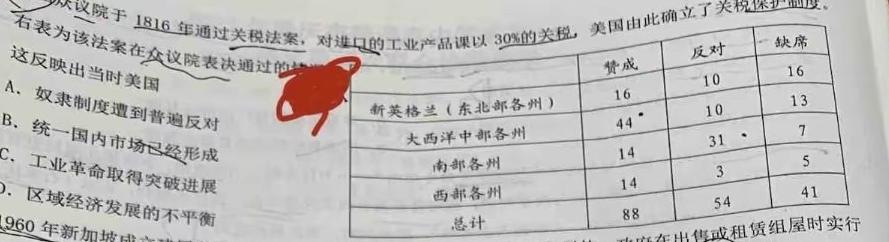 众议院于 1816 年通过关税法案，对进口的工业产品课以 30%的关税，美国由此确立了关税保护制度。
右表为该法案在众议院表决通过的
这反映出当时美国
A、奴隶制度遭到普遍反对
B、统一国内市场已经形成
C、工业革命取得突破进展
D、区域经济发展的不平衡
赞成 反对 缺席
新英格兰（东北部各州） 16 10 16
大西洋中部各州 44 10 13
南部各州 14 31 7
西部各州 14 3 5
总计 88 54 41
1960 年新加坡成立
政府在出售或租赁组屋时实行